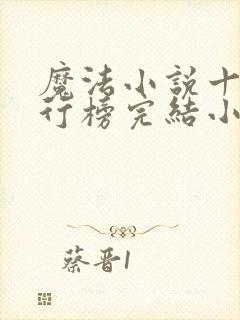 魔法小説十
行榜完結小
蔡晋1